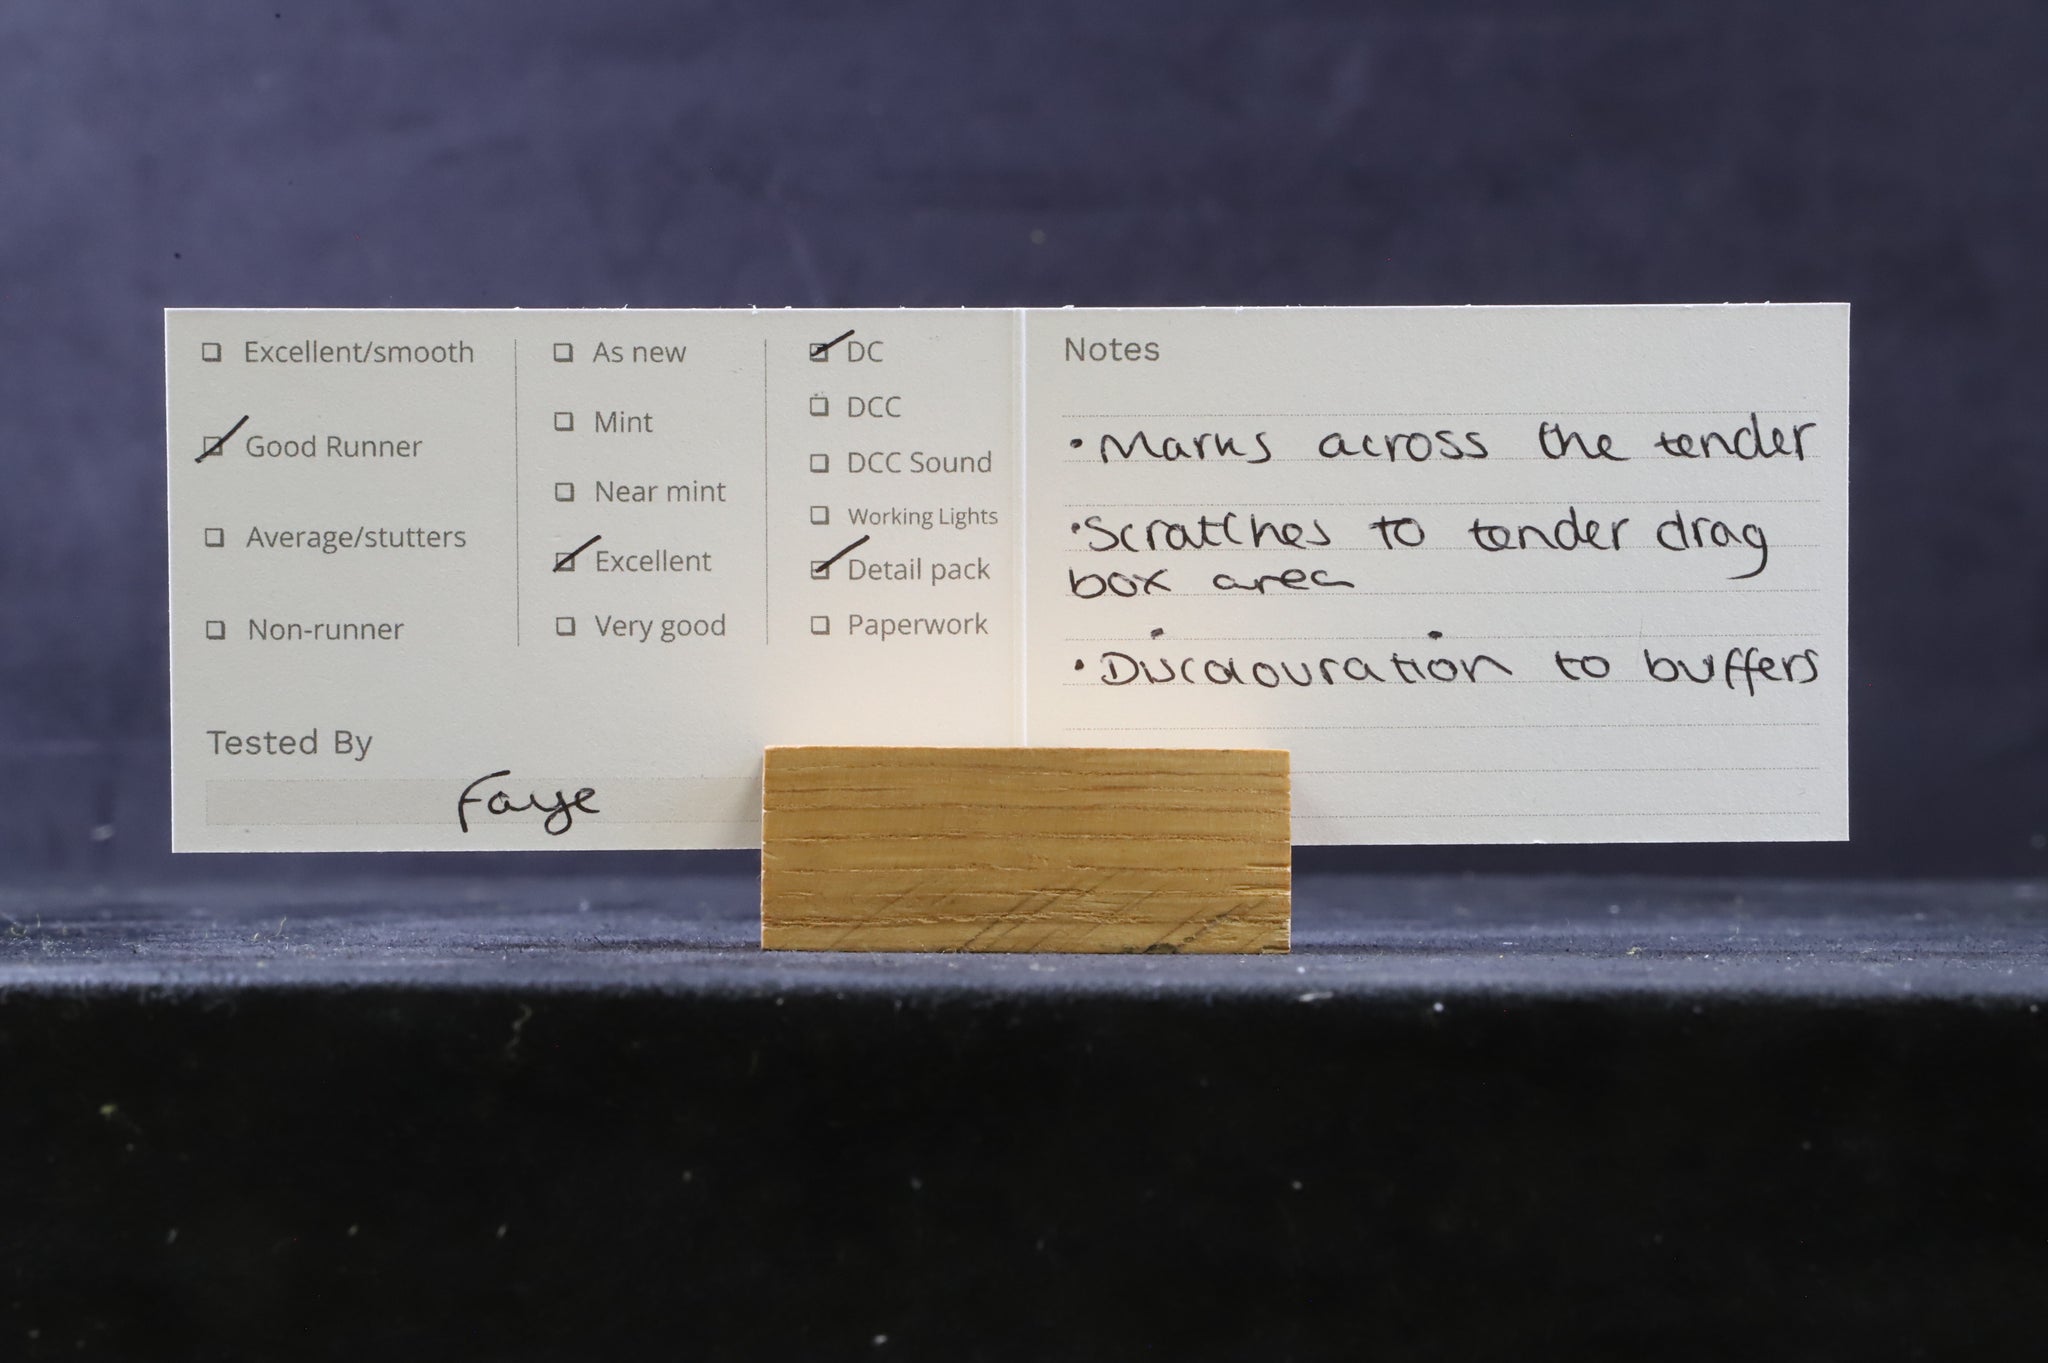 Excellent/smooth
Good Runner
Average/stutters
Non-runner
As new
Mint
Near mint
Excellent
Very good
DC
DCC
DCC Sound
Working Lights
Detail pack
Paperwork
Tested By
Faye
Notes
• Marks across the tender
• Scratches to tender drag
box area
• Discolouration to buffers